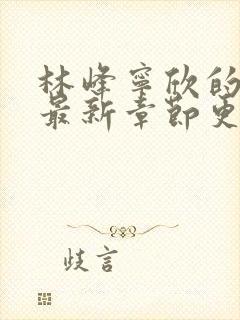 林峰寧欣的
最新章節更
歧言